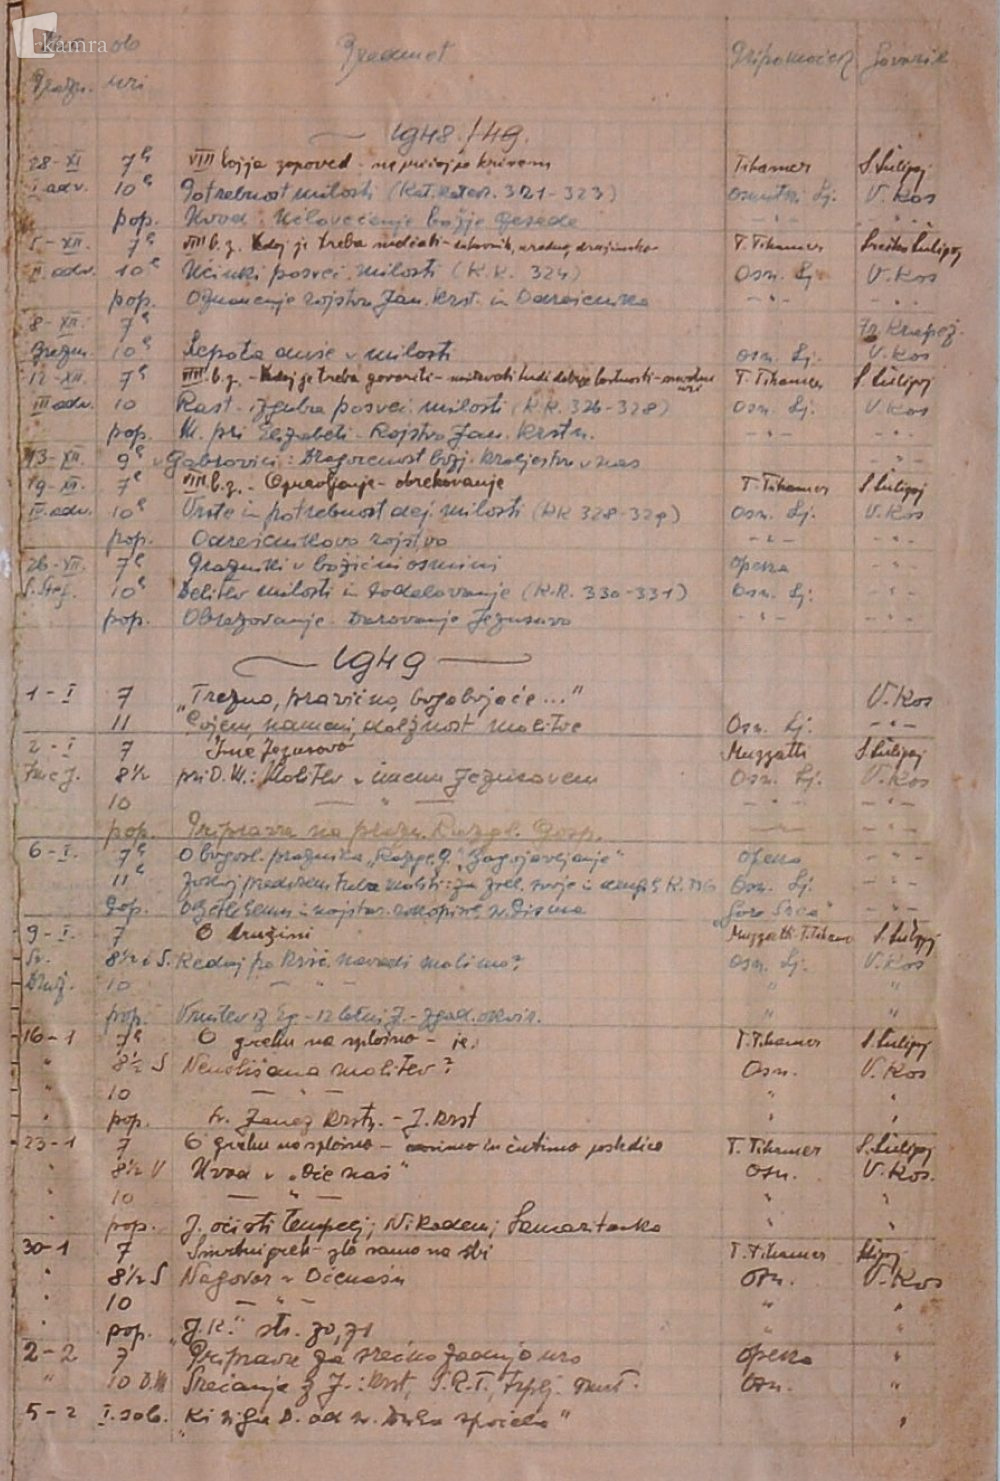 kamra
ob Predmet Pripomočki Govornik
Prazn. uri
1948./49.
28-XI 7h VIII božja zapoved - ne pričaj po krivem Tihamer S. Šuligoj
I. adv. 10h Potrebnost milosti (Kat. 321-323) Osn. Lj. V. Kos
pop. Uvod: Učlovečenje božje besede - " - - " -
5-XII. 7h VIII b. z. Kdaj je treba molčati - T. Tihamer Srečko Šuligoj
II. adv. 10h Učinki posveč. milosti (K.K. 324) Osn. Lj. V. Kos
pop. Oznanenje rojstva Jan. Krst. in Odrešenika - " - - " -
8-XII. 7h Fr. Krapež.
Prazn. 10h Lepota duše v milosti Osn. Lj. V. Kos
12-XII. 7h VIII. b. z. - Kdaj je treba govoriti - T. Tihamer S. Šuligoj
III adv. 10 Rast - izguba posveč. milosti (K.K. 326-328) Osn. Lj. V. Kos
pop. M. pri Elizabeti - Rojstvo Jan. Krstn. - " - - " -
13-XII. 9h v Gabrovici: Dragocenost božj. kraljestva v nas - " -
19-XII. 7h VIII. b. z. - Opravljanje - obrekovanje T. Tihamer S. Šuligoj
IV. adv. 10h Vrste in potrebnost dej. milosti (KK 328-329) Osn. Lj. V. Kos
pop. Odrešenikovo rojstvo - " - - " -
26-XII. 7h Prazniki v božični osmini opeka - " -
S. Štef. 10h Delitev milosti in sodelovanje (K.K. 330-331) Osn. Lj. - " -
pop. Obrezovanje. Darovanje Jezusovo - " - - " -
1949
1-I 7 "Trezno, pravično, bogaboječe..." V. Kos
11 Pojem, nameni, dolžnost molitve Osn. Lj. - " -
2-I 7 Ime Jezusovo Muzzatti S. Šuligoj
Ime J. 8½ pri D. M.: Molitev v imenu Jezusovem Osn. Lj. V. Kos
10 — " — - " - - " -
pop. Priprava na prazn. Razgl. Gosp. — - " -
6-I. 7h O bogosl. praznika "Razgl. G." "Prikazovanje" opeka - " -
11h Osn. Lj. - " -
Pop. "Gore Srca" - " -
9-I. 7 O družini Muzzatti-Tihamer S. Šuligoj
Sv. 8½ i S. Kedaj po kršč. navadi molimo? Osn. Lj. V. Kos
Druž. 10 — " — " "
pop. Vrnitev iz Eg. - 12 letni J. - " "
16-1 7h O grehu na splošno - T. Tihamer S. Šuligoj
" 8½ S Neuslišana molitev? Osn. V. Kos
" 10 — " — " "
" pop. Sv. Janez Krstn. - J. Krst " "
23-1 7 O grehu na splošno - in čutimo posledice T. Tihamer S. Šuligoj
" 8½ V Uvod v "Oče naš" Osn. V. Kos.
" 10 — " — " "
" pop. J. očisti tempelj; Nikodem; Samaritanka " "
30-1 7 Smrtni greh - zlo samo na sebi T. Tihamer
" 8½ S Nagovor v Očenašu Osn. V. Kos
" 10 — " — " "
pop. "J. K." str. 70, 71 " "
2-2 7 Priprava za srečno zadnjo uro opeka "
" 10 D.M Srečanje z J.: Osn. "
5-2 I. sob. "Ki si ga D. od sv. Duha spočela" "